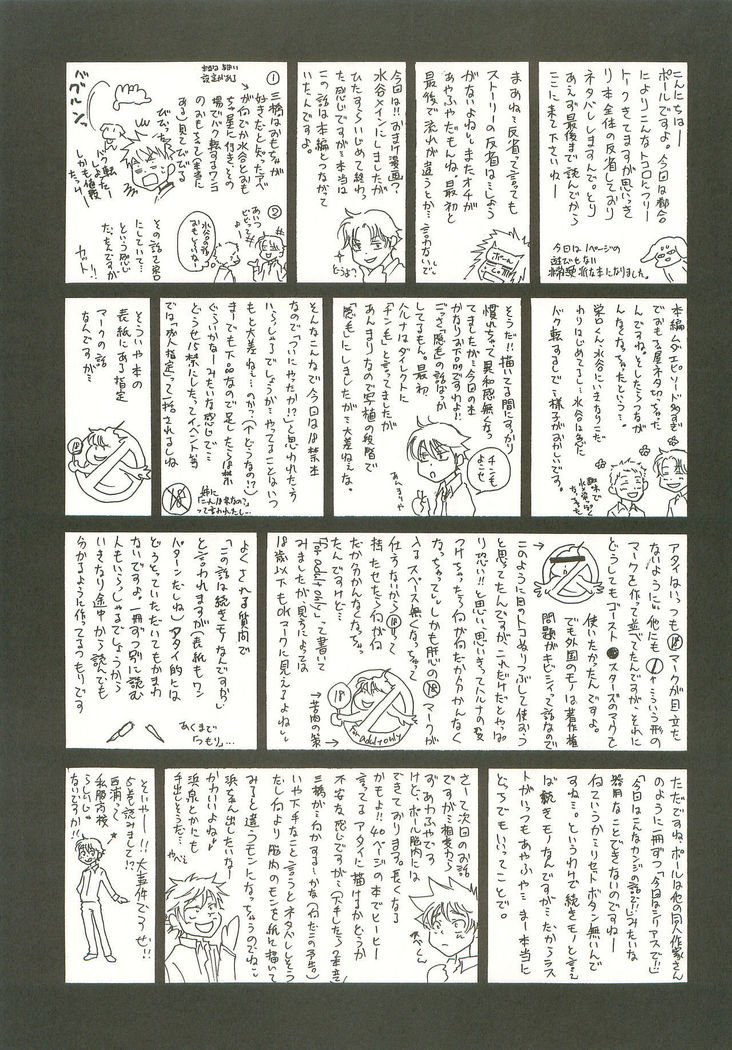 こんにちはー
ポールですよ。今回は都合
によりこんなトコロにフリー
トークきてますが思いっき
り本全体の反省しており
ネタバレしますんで。とり
あえず最後まで読んでから
ここに来て下さいねー
今日は1ページの
遊びもない
な本になりました。
まあね…反省って言っても
ストーリーの反省は…しょう
がないよね。まだオチが
あやふやだもんね。最初と
最後で流れが違うとか…言わないで。
ポール
今回は!!おまけ漫画?
水谷メインにしましたが
ひたすらいじめて終わっ
た感じですが…本当は
この話は本編とつながって
いたんですよ。
どうよ?
①
三橋はおもちゃが
好きだと知った
が何でか水谷とおも
ちゃ屋に行き、その
場でバク転するワンコ
のおもちゃ(本当に
ある)見てびびる
びびっ
バク転
したー
しかも値段
②
水谷の話
おもしろいなー
その話で栄口
にしていて…
という感じ
だったんですが
カット!!
本編ムダエピソード多すぎ
でおもちゃ屋ネタ切っちゃった
んですね。そしたらつながん
なくなっちゃったという…。
栄口くん、水谷にいきなりこだ
わりはじめてるし…水谷は急に
バク転するしで…様子がおかしいです。
そうだ!!描いてる間にすっかり
慣れちゃって異和感無くなっ
てましたが…今回の本
かなりお下品ですわよ!!
ごっさ「陰毛」の話ばっか
してるもん。最初
ハルナはダイレクトに
「チン毛」と言ってましたが
あんまりなので写植の段階で
「陰毛」にしましたが…大差ねぇな。
チン毛
よこせ
あんまりや
そんなこんなで、今回は18禁本
なので「ついにやたか!?」と思われた方
いらっしゃるでしょうが…やってることはいつ
もと大差ね…のか?(←どうなの!?)
ま…でも下品なので足したら18禁
ぐらいかなーみたいな感じで…
どうせ15禁にしたってイベント等
では「成人指定」って一括されるしね
18
姉に
「これ18禁なの?」
って言われたし…
そういや本の
表紙にある指定
マークの話
なんですが…
アタイはいつも⑱マークが目立た
ないように
他にも
こういう形の
マークを作って並べてたんですが、それに
どうしてもゴーストバスターズのマークを
使いたかったんですよ。
でも外国のモノは著作権
問題がキビシイって話なので
このように目のトコぬりつぶして使おう
と思ってたんですが、これだけだとやっぱ
り恐い!!と思い、思いきってハルナの髪
つけちゃったら何が何だか分かんなく
なっちゃって…しかも肝心の⑱マークが
入るスペース無くなっちゃって
仕方ないから⑱って
持たせたら何がなん
だか分かんなくなっちゃっ
たんですけど…
「for adult only」って書いて
みましたが見ようによっては
18歳以下もokマークに見えるよね…。
18
for adult only
→苦肉の策
よくされる質問で
「この話は続きモノなんですか」
と言われますが(表紙もワン
パターンだしね)アタイ的には
どうとっていただいてもかまわ
ないです。一冊ずつ別に読む
人もいらっしゃるでしょうから
いきなり途中から読んでも
分かるように作ってるつもりです
あくまで
「つもり」…
ただですね、ポールは他の同人作家さん
のように一冊ずつ「今回はシリアスで!!」
「今回はこんなカンジの話で!!」みたいな
器用なことできないのですねー
何ていうか…リセットボタン無いんで
すね…。というわけで続きモノと言って
ば続きモノなんですが…だからラス
トがいつもあやふや…ま…本当に
どっちでもいいってことで。
さーて次回のお話
ですが…相変わら
ずあやふやです
けど、ポール脳内には
できております。長くなる
かもよ!!40ページの本でヒーヒー
言ってるアタイに描けるかどうか
不安な感じですが…(下手したら2本立て)
三橋が…何かする…かな(何だこの予告。)
いや下手なこと言うとネタバレしそう
だし、何より脳内のモンを紙に描いて
みると違うモンになっちゃうのでね。
浜ちゃん出したいなー
かわいいよね
浜泉とかにも
手出しそうだ…
やべぇ
そいやー!!!大事件ですぜ!!
5巻を読みまして!?
西浦って
私服高校
らしいじゃ
ないですか!!